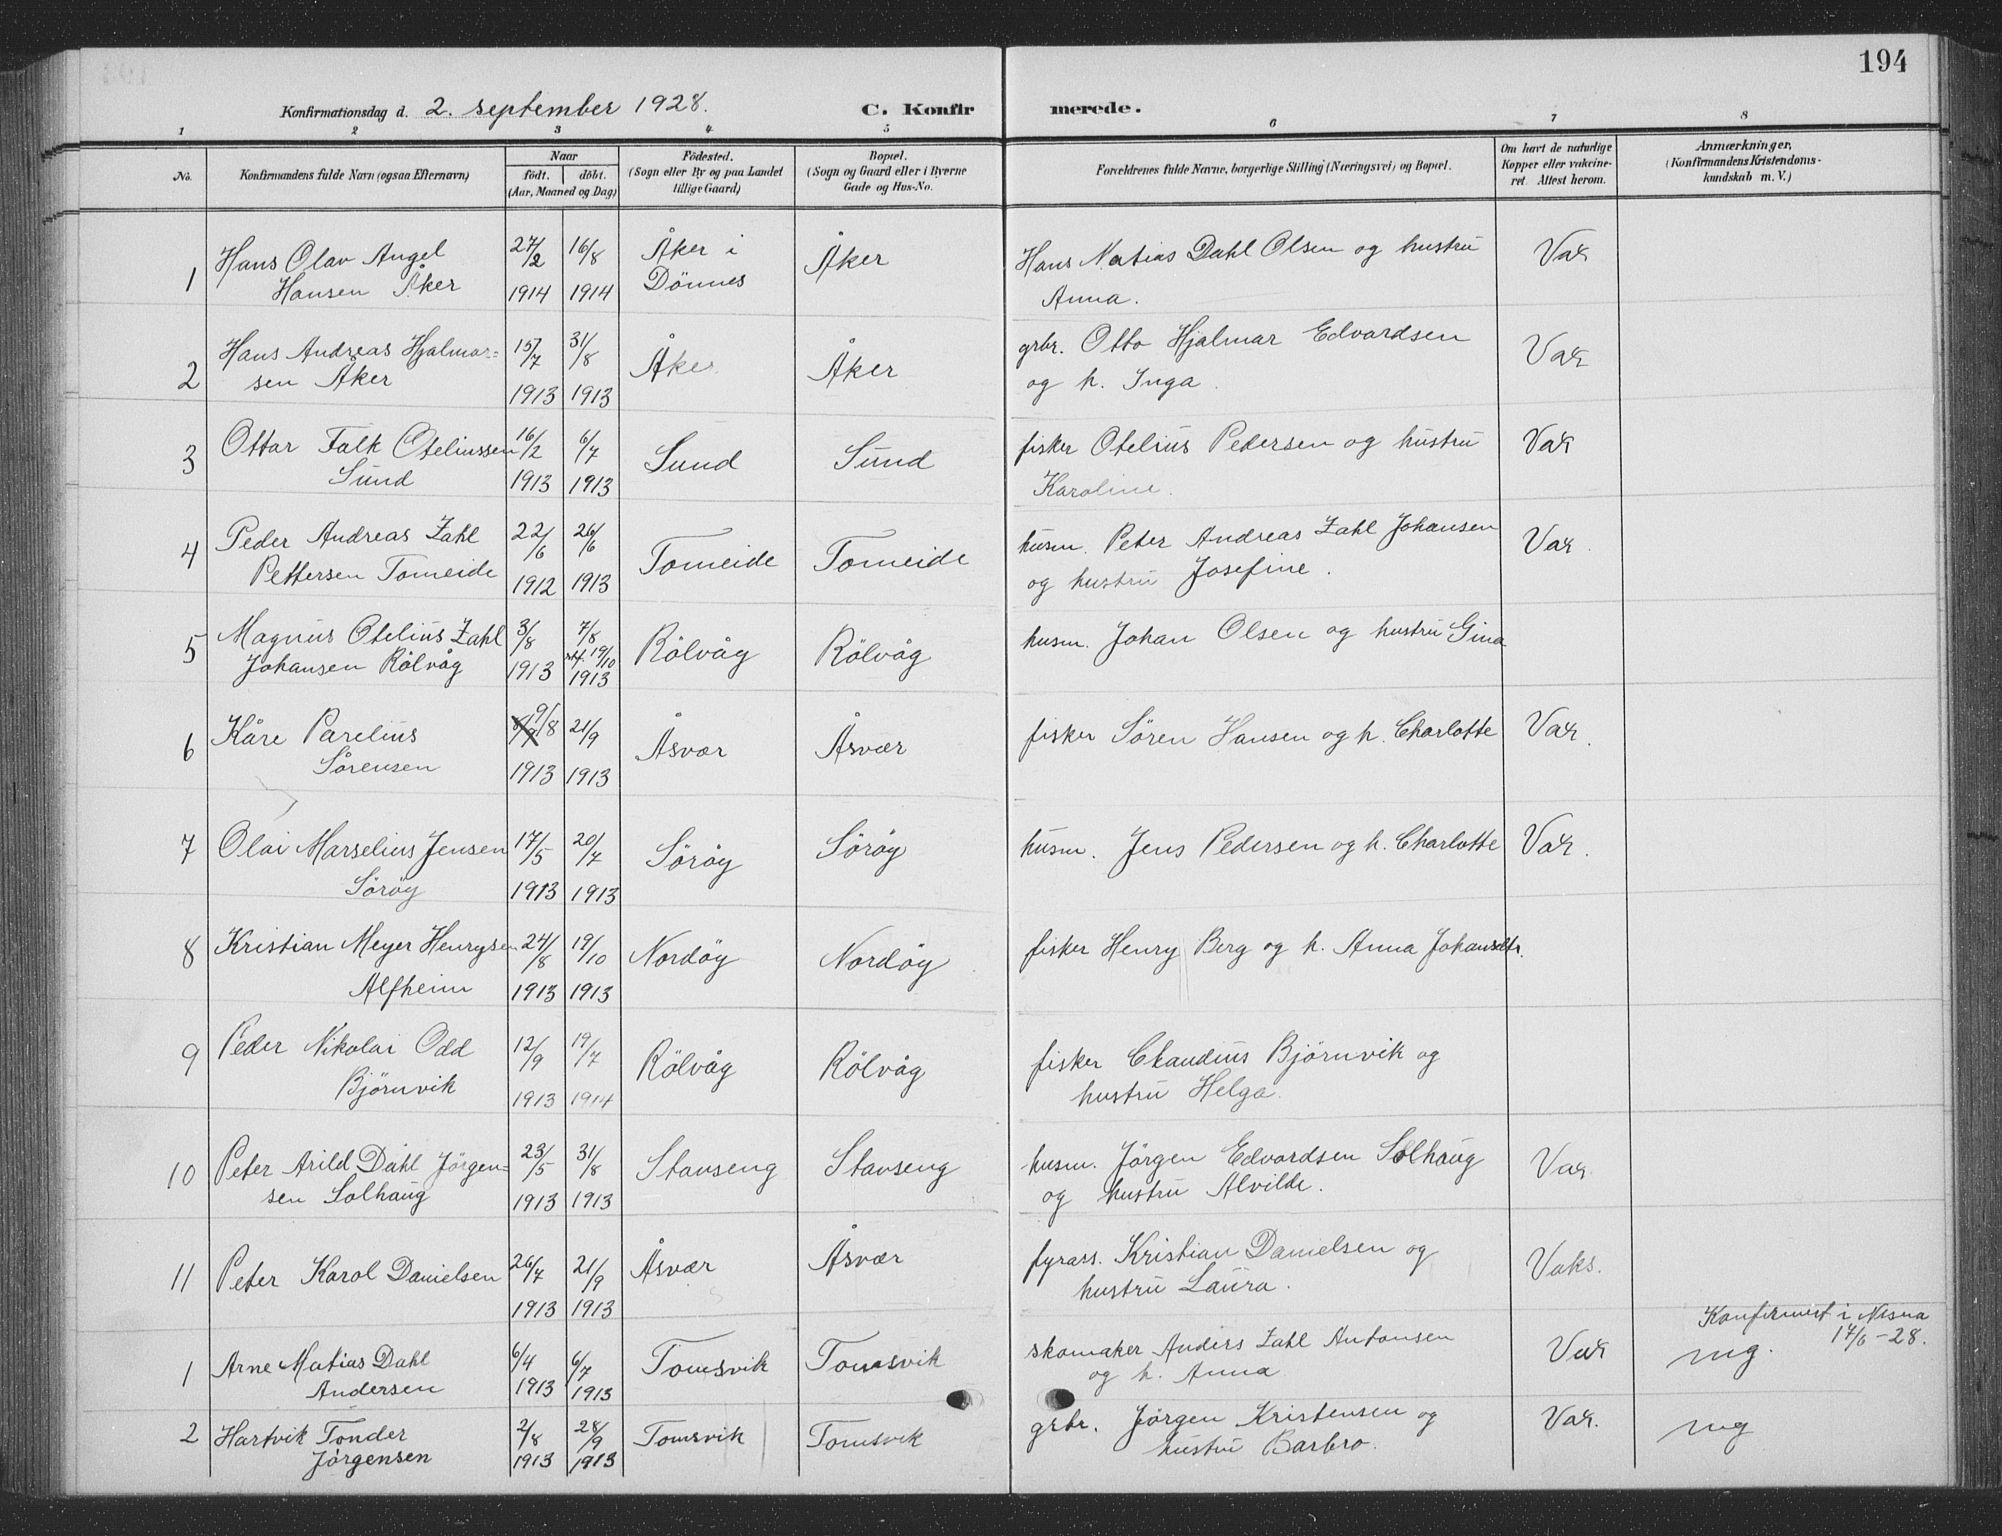 194
Konfirmationsdag d. 2. september 1928. C. Konfirmerede.
1 2 3 4 5 6 7 8
No. Konfirmandens fulde Navn (ogsaa Efternavn) Naar født. døbt. (Aar, Maaned og Dag) Fødested. (Sogn eller By og paa Landet tillige Gaard) Bopæl. (Sogn og Gaard eller i Byerne Gade og Hus-No. Forældrenes fulde Navne, borgerlige Stilling (Næringsvei) og Bopæl. Om havt de naturlige Kopper eller vakcineret. Attest herom. Anmærkninger, (Konfirmandens Kristendomskundskab m. V.)
1 Hans Olav Angel 27/2 16/8 Åker i Åker Hans Matias Dahl Olsen og hustru Vak
Hansen Åker 1914 1914 Dönnes Anna.
2 Hans Andreas Hjalmar= 15/7 31/8 Åker Åker grbr. Otto Hjalmar Edvardsen Vak
sen Åker 1913 1913 og h. Inga.
3 Ottar Falk Oteliussen 16/2 6/7 Sund Sund fisker Otelius Pedersen og hustru Vak
Sund 1913 1913 Karoline.
4 Peder Andreas Zahl 22/6 26/6 Tomeide Tomeide husm. Peter Andreas Zahl Johansen Vak.
Pettersen Tomeide 1912 1913 og hustru Josefine.
5 Magnus Otelius Zahl 3/8 7/8 Rölvåg Rölvåg husm. Johan Olsen og hustru Gina
Johansen Rölvåg 1913 19/10 1913
6 Kåre Parelius 9/8 21/9 Åsvær Åsvær fisker Sören Hansen og h. Charlotte Vak.
Sörensen 1913 1913
7 Olai Marselius Jensen 17/5 20/7 Söröy Söröy husm. Jens Pedersen og h. Charlotte Vak.
Söröy 1913 1913
8 Kristian Meyer Henrysen 24/8 19/10 Nordöy Nordöy fisker Henry Berg og h. Anna Johansdtr.
Alfheim 1913 1913
9 Peder Nikolai Odd 12/9 19/7 Rölvåg Rölvåg fisker Claudius Björnvik og
Björnvik 1913 1914 hustru Helga.
10 Peter Arild Dahl Jörgen= 23/5 31/8 Stavseng Stavseng husm. Jörgen Edvardsen Solhaug Vak
sen Solhaug 1913 1913 og hustru Alvilde.
11 Peter Karol Danielsen 26/7 21/9 Åsvær Åsvær fyrass. Kristian Danielsen og Vaks.
1913 1913 hustru Laura.
Konfirmert i Nesna
17/6-28.
1 Arne Matias Dahl 6/4 6/7 Tomsvik Tomsvik skomaker Anders Zahl Antonsen Vak mg.
Andersen 1913 1913 og h. Anna
2 Hartvik Tonder 2/8 28/9 Tomsvik Tomsvik grbr. Jörgen Kristensen og Vak. mg
Jörgensen 1913 1913 hustru Barbro.